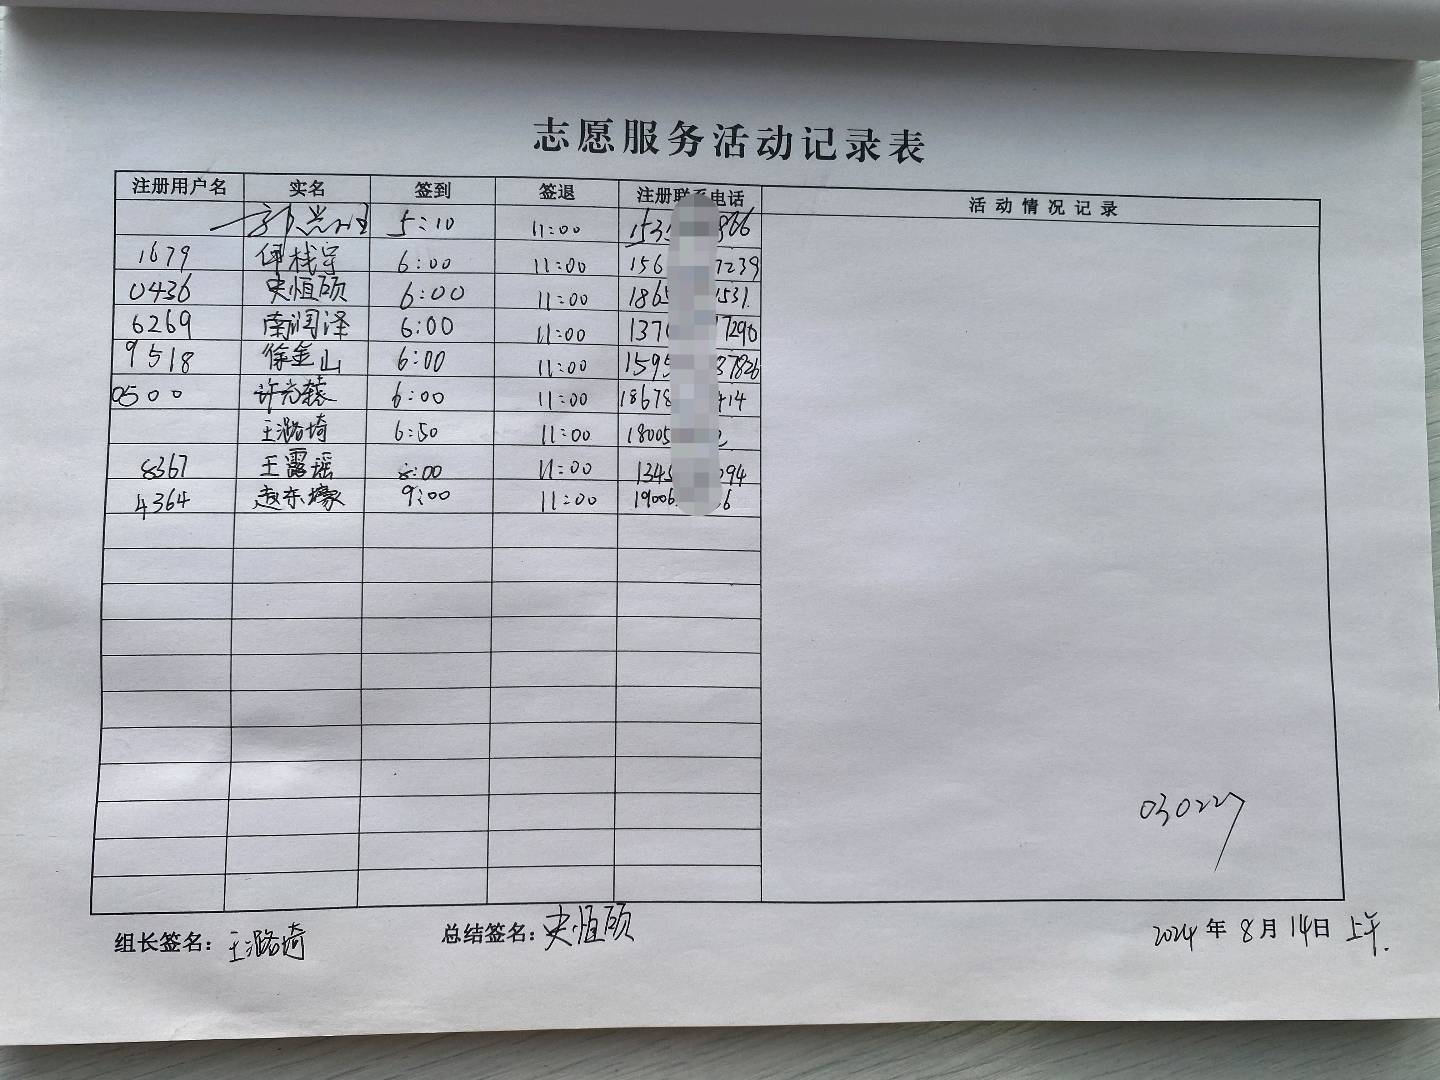 志愿服务活动记录表
注册用户名 实名 签到 签退 注册联系电话 活动情况记录
5:10 11:00 153 866
1679 6:00 11:00 156 7239
0436 史恒硕 6:00 11:00 1865 1531
6269 南润泽 6:00 11:00 137 7290
9518 徐金山 6:00 11:00 1595 37826
0500 许光辕 6:00 11:00 18678 414
王潞埼 6:50 11:00 18005
8367 王露瑶 8:00 11:00 1345 094
4364 赵东壕 9:00 11:00 19006 6
030227
组长签名: 王潞埼 总结签名: 史恒硕 2024年8月14日 上午.